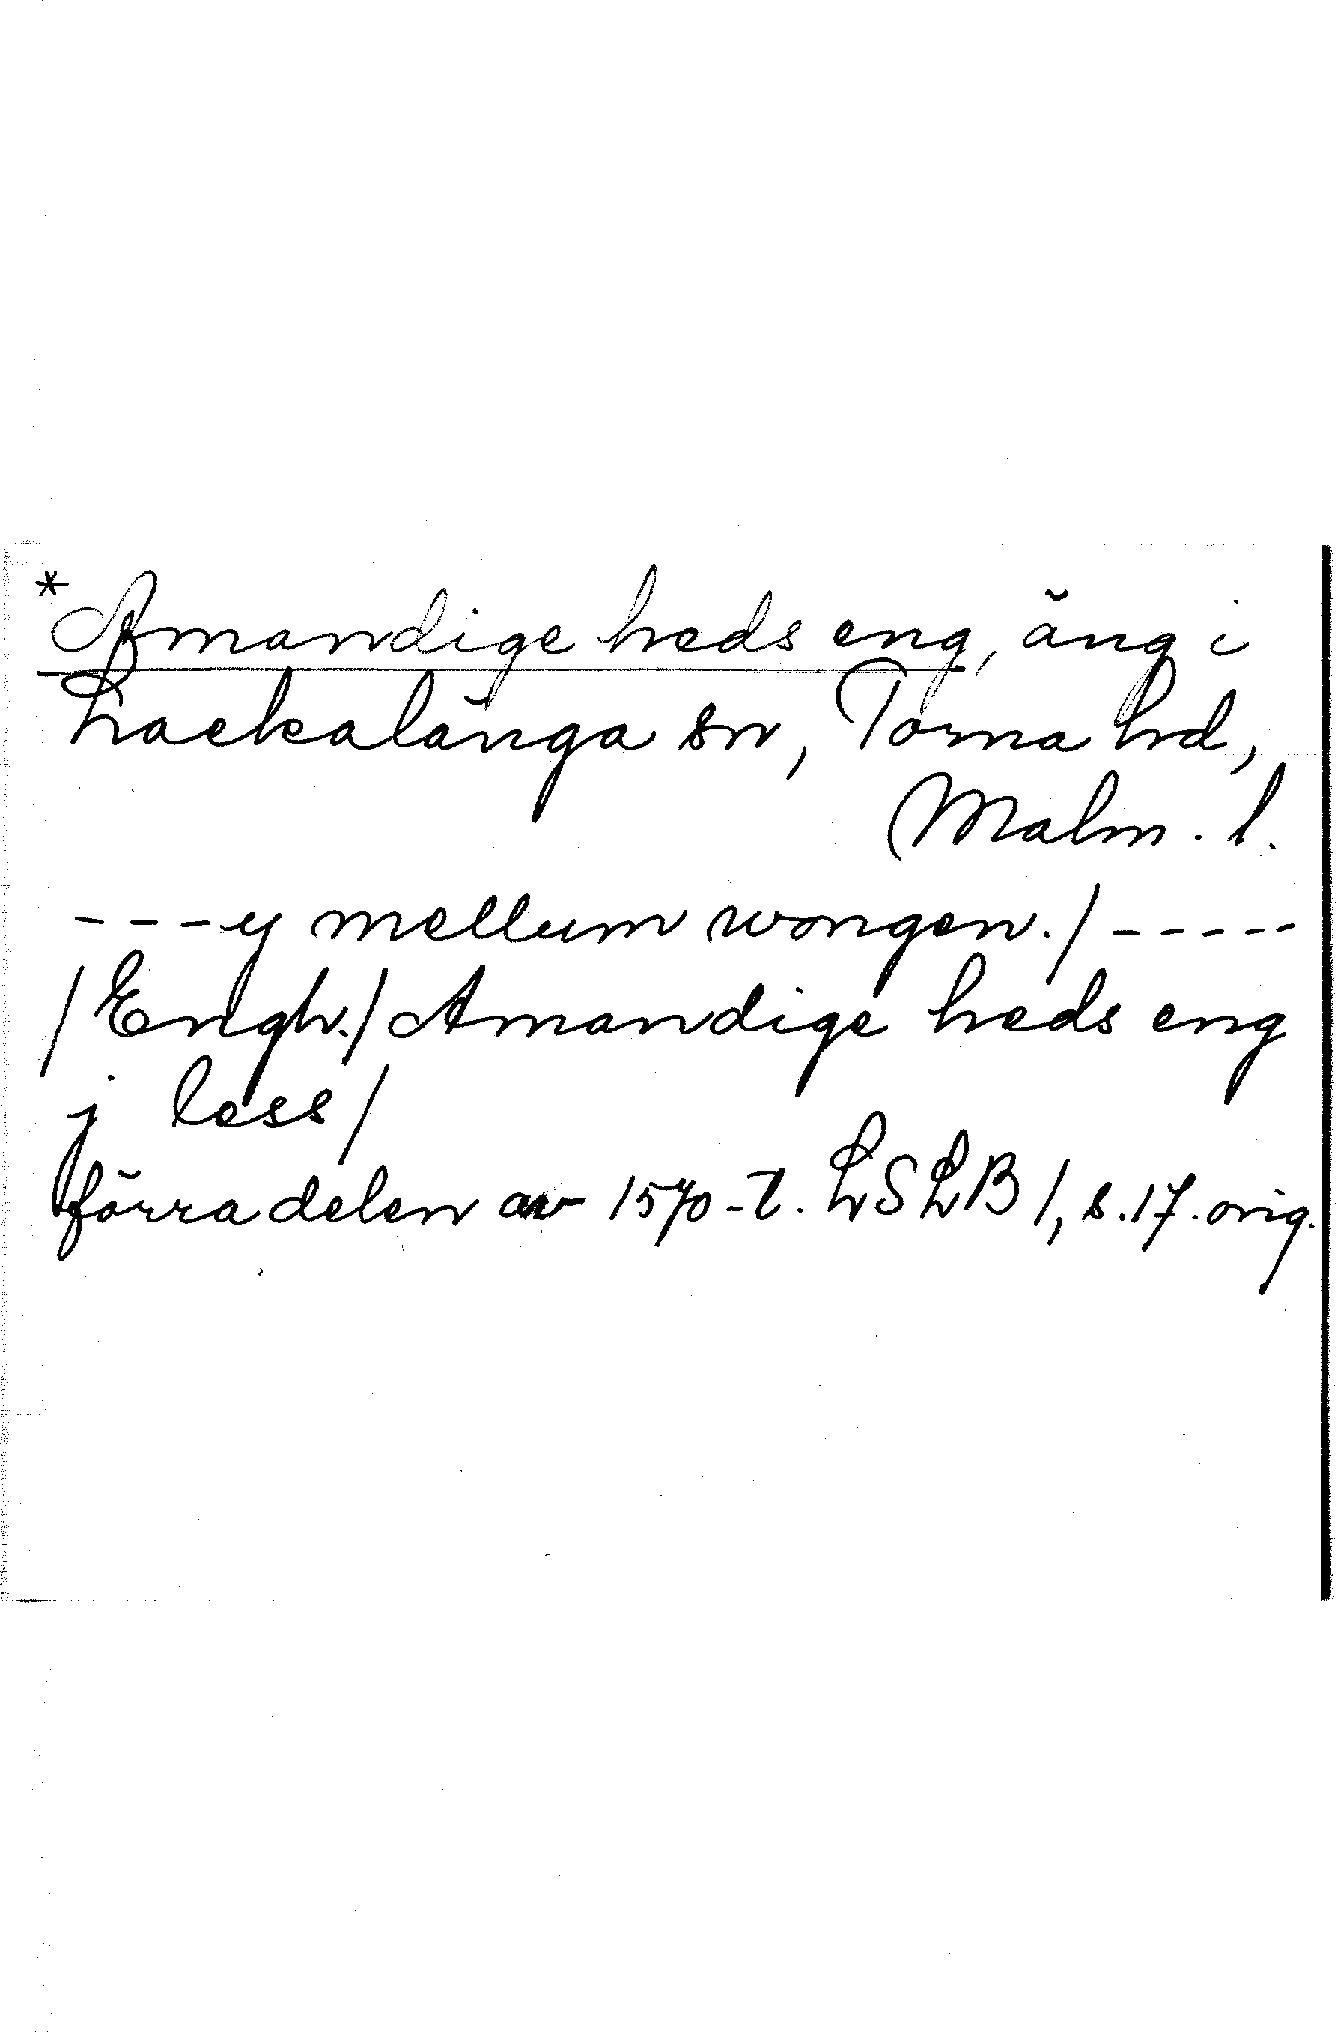 *Amandige heds eng, äng i
Lackalänga sn, Torna hd,
Malm. l.
---y mellum wongen./-----
/Engh./Amandige heds eng
j less/
förra delen av 1570-t. LSLB 1, s.17. orig.